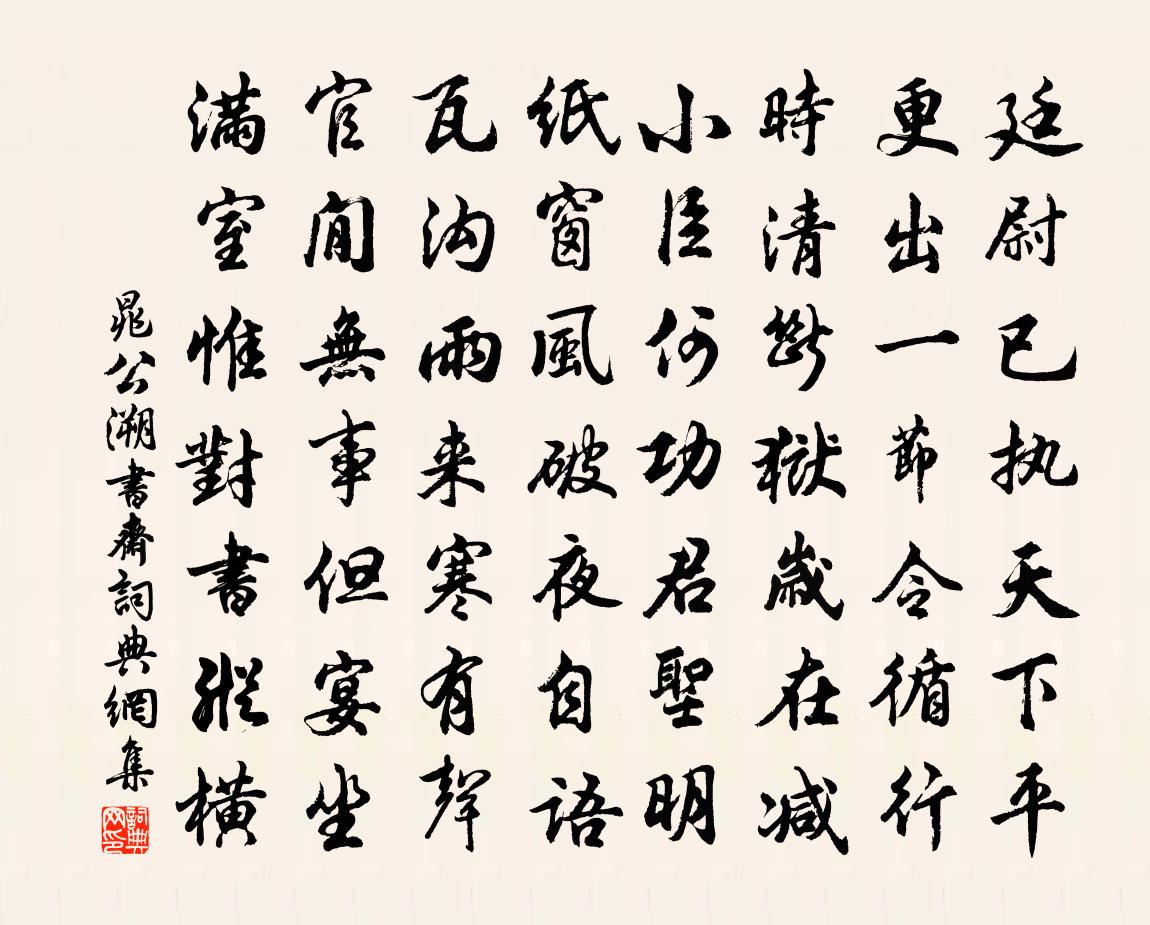 廷尉已执天下平
更出一節令循行
時清斷獄歲在減
小臣何功君聖明
紙窗風破夜自語
瓦沟雨来寒有聲
官閒無事但宴坐
满室惟對書縱橫
晁公溯書齋詞典網集
詞典网印